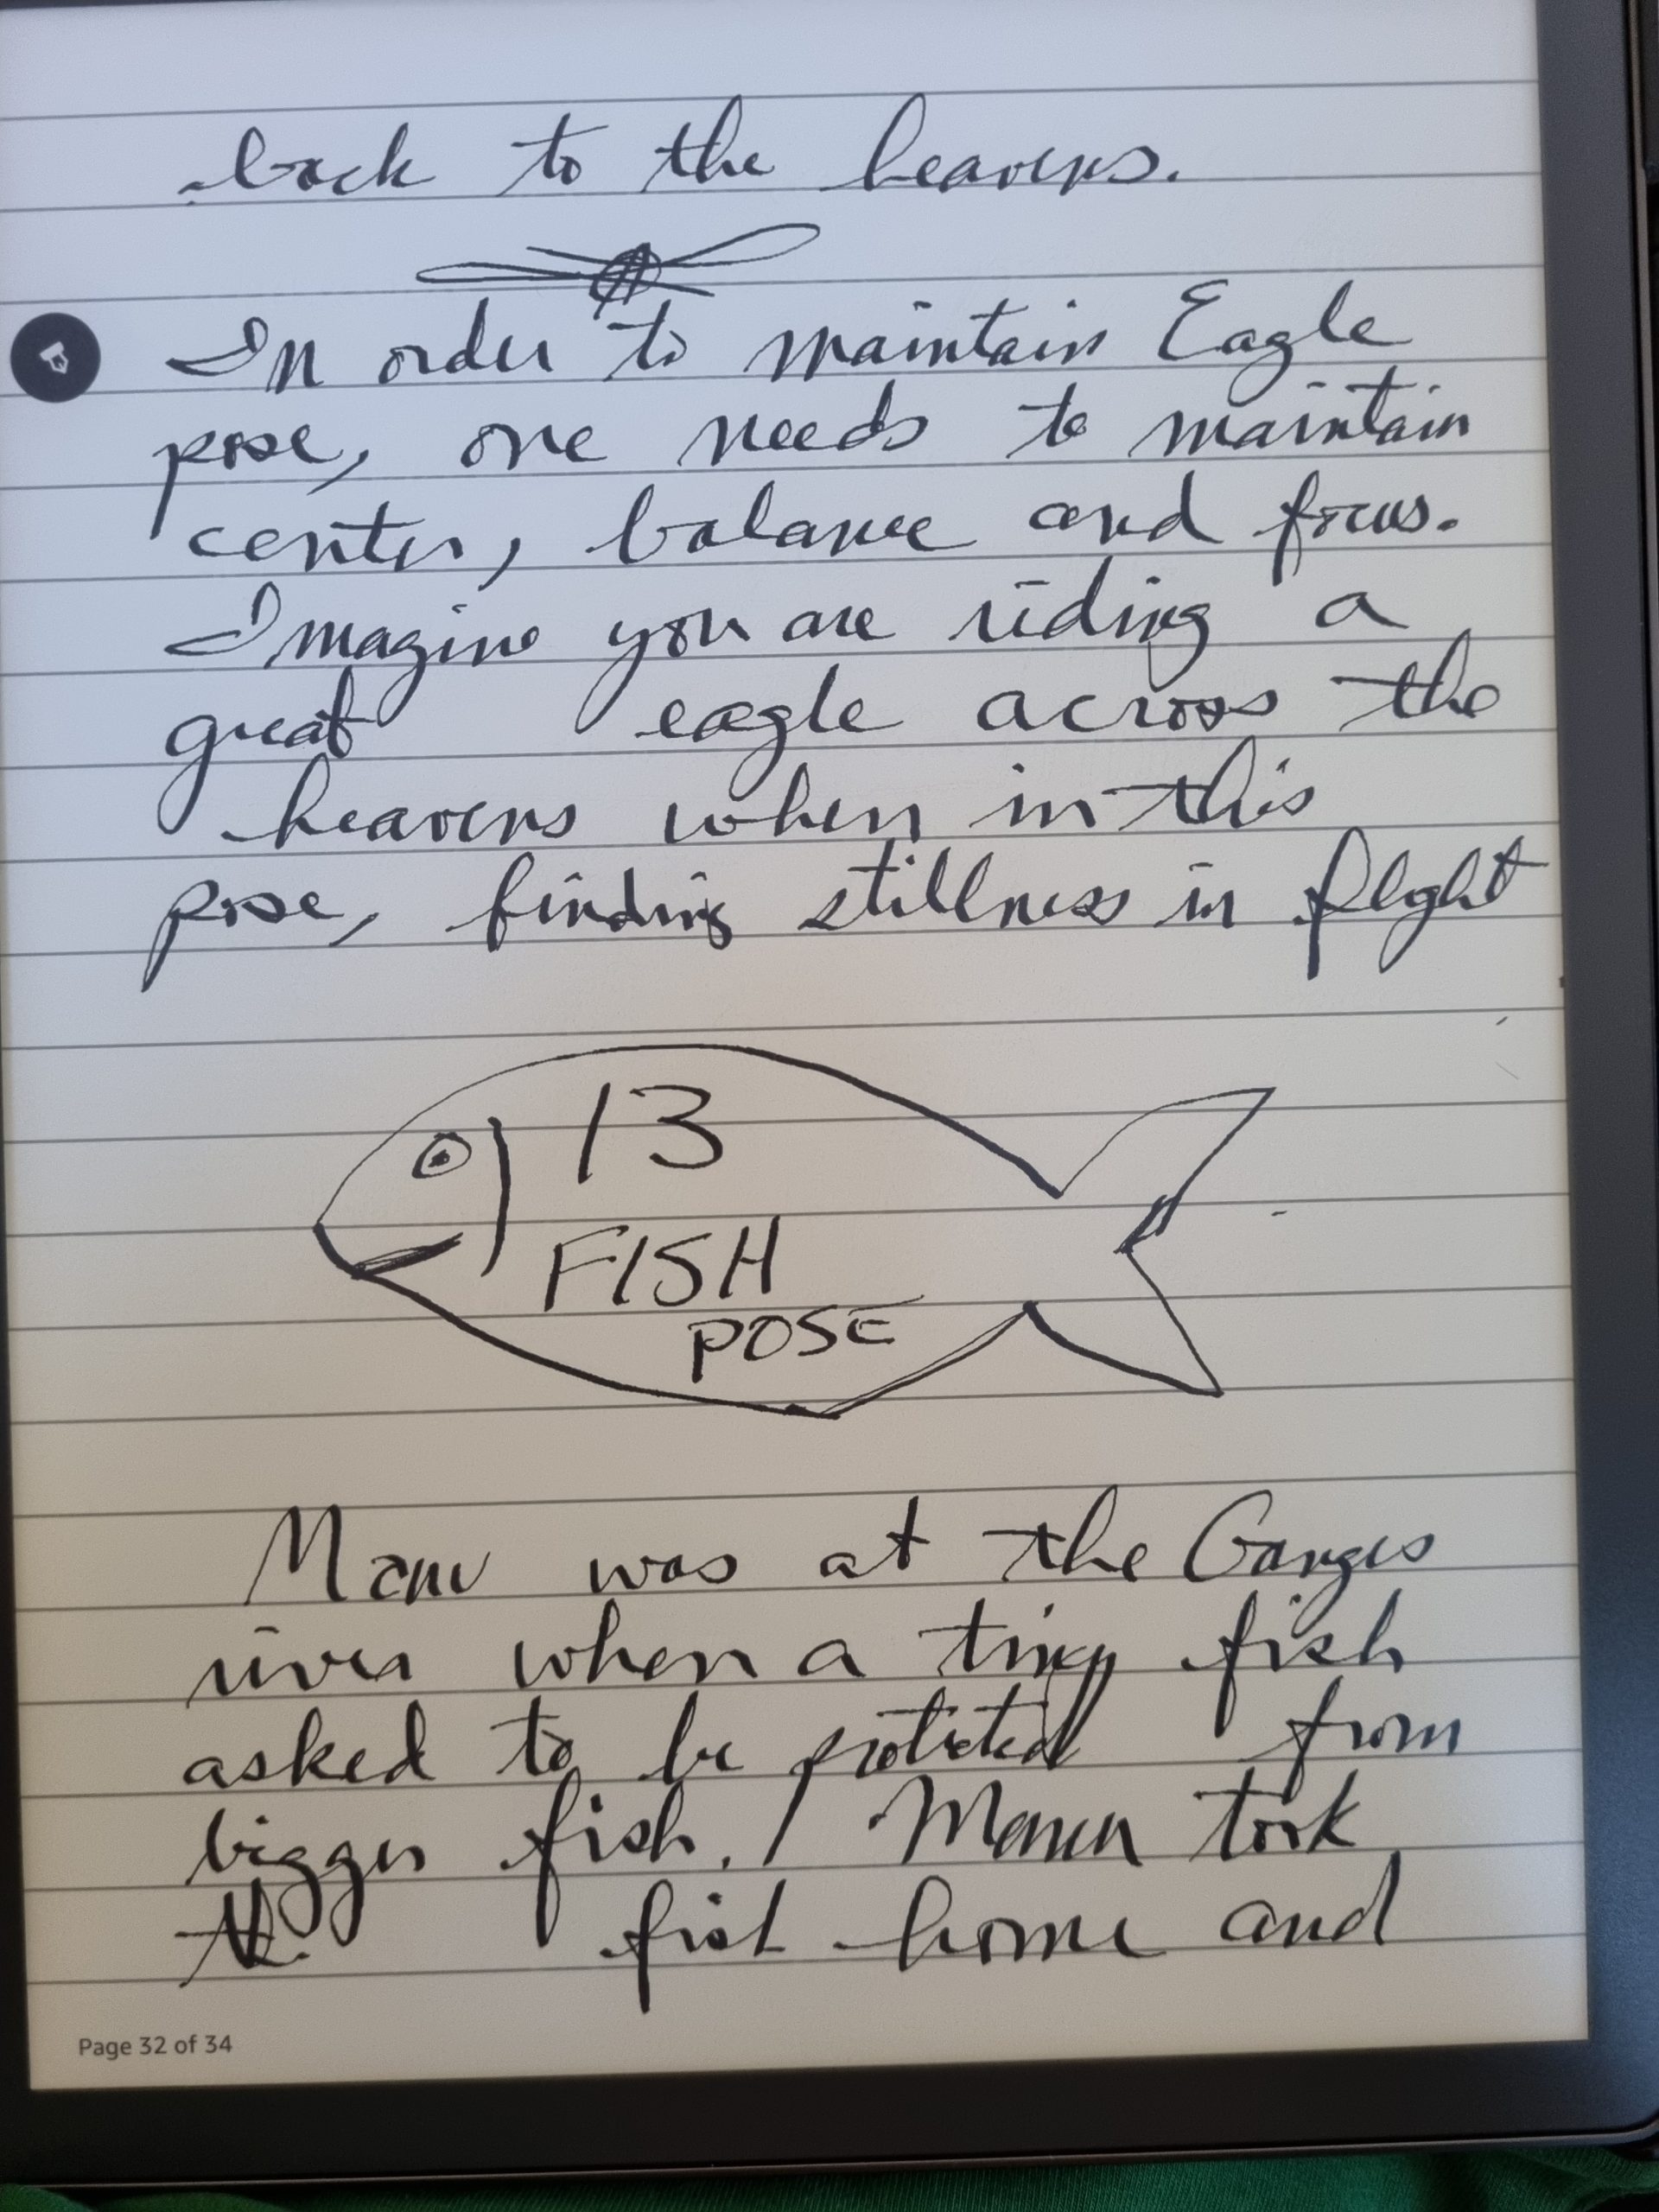 back to the heavens.
In order to maintain Eagle
pose, one needs to maintain
center, balance and focus.
Imagine you are riding a
great eagle across the
heavens when in this
pose, finding stillness in flight
13
FISH
POSE
Manu was at the Ganges
river when a tiny fish
asked to be protected from
bigger fish. Manu took
the fish home and
Page 32 of 34